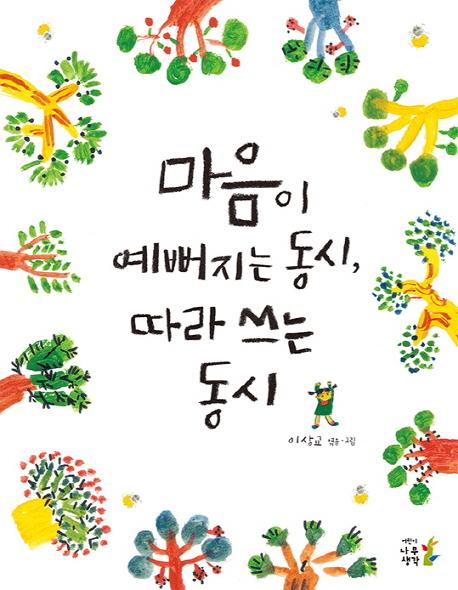 마음이
예뻐지는 동시,
따라 쓰는
동시
이상교 엮음·그림
어린이
나무
생각